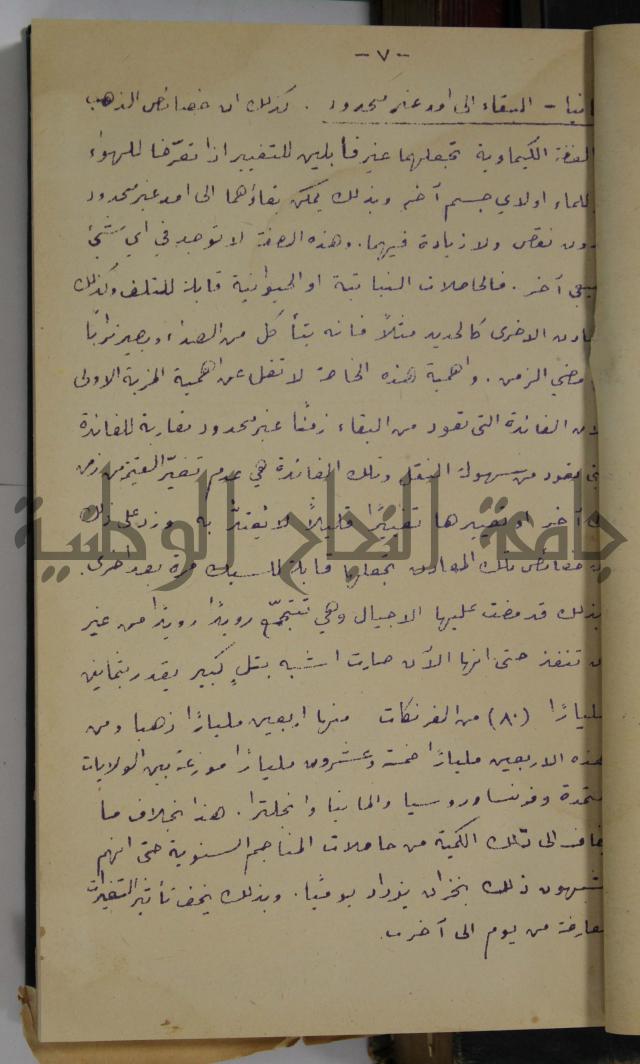 -٧-
ثانيا - البقاء الى امد غير محدود . كذلك ان خصائص الذهب
الفضة الكيماوية تجعلهما غير قابلين للتغيير اذا تعرّضا للهواء
للماء او لاي جسم آخر وبذلك يمكن بقاؤهما الى امد غير محدود
دون نقص ولا زيادة فيهما. وهذه الصفة لا توجد في اي شيْ
طبيعي آخر . فالحاصلات النباتية او الحيوانية قابلة للتلف وكذلك
المعادن الاخرى كالحديد مثلاً فانه يتأكل من الصداء ويصير تراباً
مضي الزمن . واهمية هذه الخاصة لا تقل عن اهمية المزية الاولى
لان الفائدة التي تعود من البقاء زمناً غير محدود مقاربة للفائدة
التي تعود من سهولة النقل وتلك الفائدة هي عدم تغيّر القيمة من زمن
آخر او تغييرها تغييرًا قليلاً لا يُعتدّ به وزد على ذلك
خصائص تلك المعادن تجعلها قابلة للسبك مرة بعد اخرى.
بذلك قد مضت عليها الاجيال وهي تتجمّع رويدًا رويدًا من غير
ان تنفذ حتى انها الآن صارت اشبه بتلٍ كبير يقدر بثمانين
مليارًا (٨٠) من الفرنكات منها اربعين مليارًا ذهبا ومن
هذه الاربعين مليارًا خمسة وعشرون مليارًا موزعة بين الولايات
المتحدة وفرنسا وروسيا والمانيا وانجلترا . هذا بخلاف ما
يضاف الى تلك الكمية من حاصلات المناجم السنوية حتى انهم
يشبهون ذلك بخزان يزداد يوميًا. وبذلك يخف تأثير التغيرات
العارضة من يوم الى آخر.
جامعة النجاح الوطنية